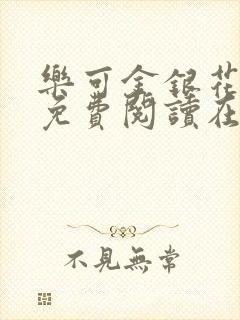 樂可金銀花
免費閱讀在
不見無常